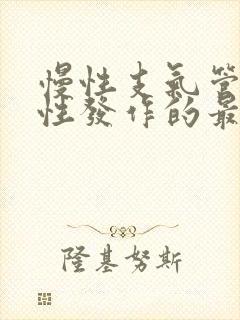 慢性支氣管
性發作的最
隆基努斯